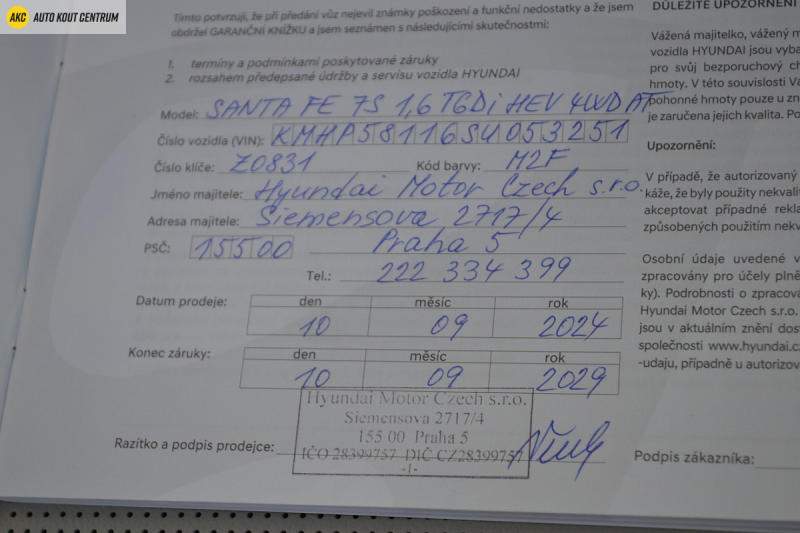 AKC AUTO KOUT CENTRUM
Tímto potvrzuji, že při předání vůz nejevil známky poškození a funkční nedostatky a že jsem
obdržel GARANČNÍ KNÍŽKU a jsem seznámen s následujícími skutečnostmi:
1. termíny a podmínkami poskytované záruky
2. rozsahem předepsané údržby a servisu vozidla HYUNDAI
Model: SANTA FE 7S 1,6 TGDi HEV 4WD AT
Číslo vozidla (VIN): KMHP58116SU053251
Číslo klíče: Z0831 Kód barvy: M2F
Jméno majitele: Hyundai Motor Czech s.r.o.
Adresa majitele: Siemensova 2717/4
PSČ: 15500 Praha 5
Tel.: 222 334 399
Datum prodeje: den měsíc rok
10 09 2024
Konec záruky: den měsíc rok
10 09 2029
Hyundai Motor Czech s.r.o.
Siemensova 2717/4
155 00 Praha 5
Razítko a podpis prodejce: IČO 28399757 DIČ CZ28399757
-1-
Podpis zákazníka:
DŮLEŽITÉ UPOZORNĚNÍ
Vážená majitelko, vážený
vozidla HYUNDAI jsou
pro svůj bezporuchový
hmoty. V této souvislosti
pohonné hmoty pouze u
je zaručena jejich kvalita.
Upozornění:
V případě, že autorizovaný
káže, že byly použity
akceptovat případné
způsobených použitím
Osobní údaje uvedené v
zpracovány pro účely
ky). Podrobnosti o
Hyundai Motor Czech s.r.o.
jsou v aktuálním znění
společnosti www.hyundai.c
-udaju, případně u